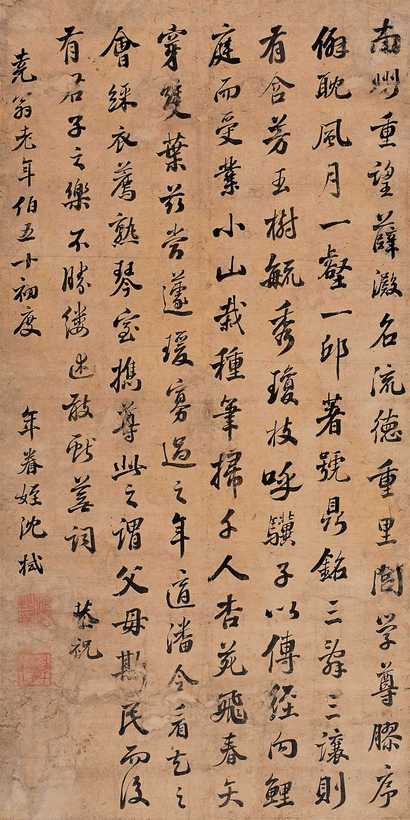 南州重望薛澱名流德重里閭学尊膠序
耽風月一壑一邱著號鼎銘三辭三讓則
有含芳玉樹毓秀瓊枝呼驥子以傳經向鯉
庭而受業小山栽種筆掃千人杏苑飛春矢
穿雙葉茲當蘧瑗寡過之年適潘令看花之
會綵衣薦熟琴室擕尊此之謂父母斯民而後
有君子之樂不勝僂述敢獻蕪詞 恭祝
堯翁老年伯五十初度 年眷姪沈栻